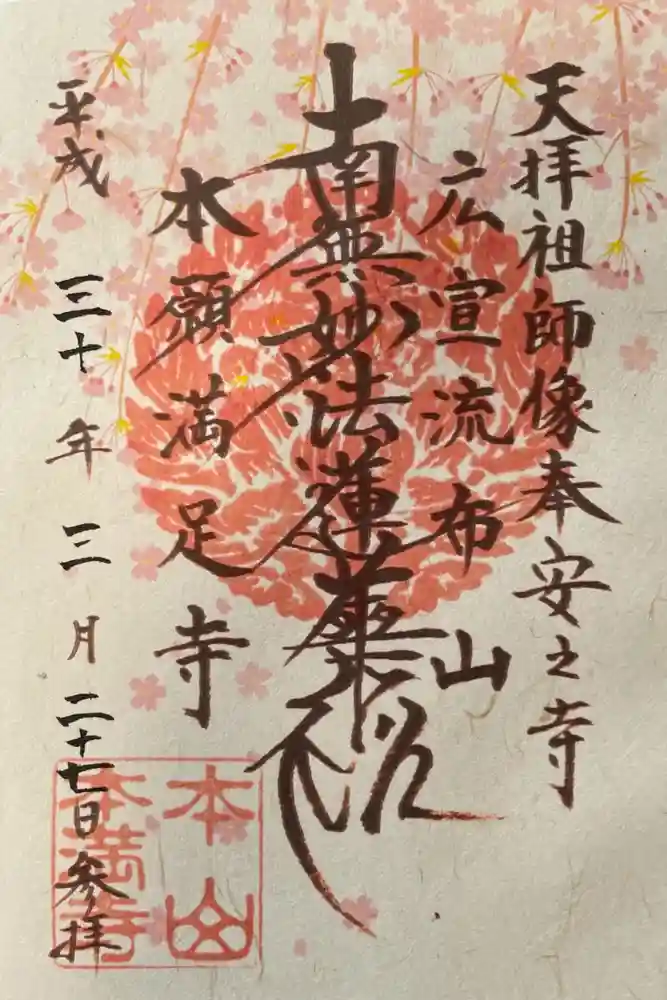 天拝祖師像奉安之寺
広宣流布山
南無妙法蓮華経
本願満足寺
平成三十年三月二十七日参拝
本山
本満寺